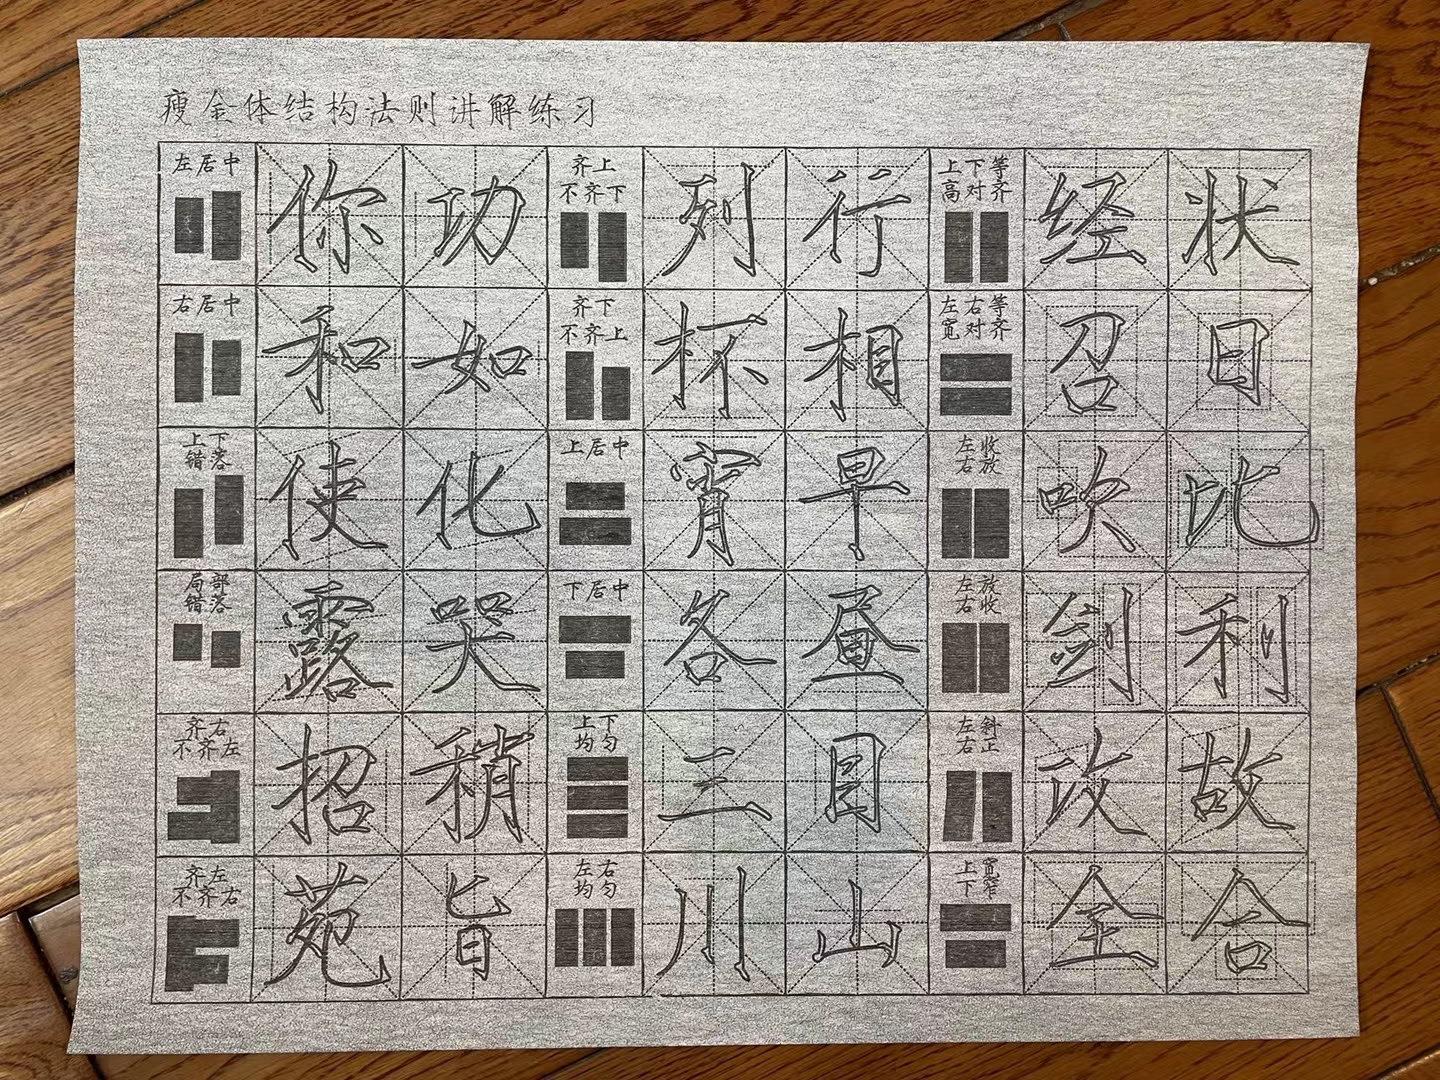 瘦金体结构法则讲解练习
左居中 你 功 齐上不齐下 列 行 上下等高对齐 经 状
右居中 和 如 齐下不齐上 杯 相 左右等宽对齐 召 日
上下错落 使 化 上居中 宵 早 左收右放 吹 比
局部错落 露 哭 下居中 各 昼 左放右收 剑 利
齐右不齐左 招 稍 上下均匀 三 目 左斜右正 改 故
齐左不齐右 苑 旨 左右均匀 川 山 上宽下窄 全 合